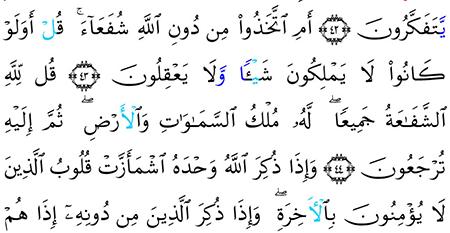 يَّتَفَكَّرُونَ ﴿٤٢﴾ أَمِ ٱتَّخَذُوا۟ مِن دُونِ ٱللَّهِ شُفَعَآءَ ۚ قُلْ أَوَلَوْ
كَانُوا۟ لَا يَمْلِكُونَ شَيْـًٔا وَّلَا يَعْقِلُونَ ﴿٤٣﴾ قُل لِّلَّهِ
ٱلشَّفَـٰعَةُ جَمِيعًا ۖ لَّهُۥ مُلْكُ ٱلسَّمَـٰوَٰتِ وَٱلْأَرْضِ ۖ ثُمَّ إِلَيْهِ
تُرْجَعُونَ ﴿٤٤﴾ وَإِذَا ذُكِرَ ٱللَّهُ وَحْدَهُ ٱشْمَأَزَّتْ قُلُوبُ ٱلَّذِينَ
لَا يُؤْمِنُونَ بِٱلْـَٔاخِرَةِ ۖ وَإِذَا ذُكِرَ ٱلَّذِينَ مِن دُونِهِۦٓ إِذَا هُمْ